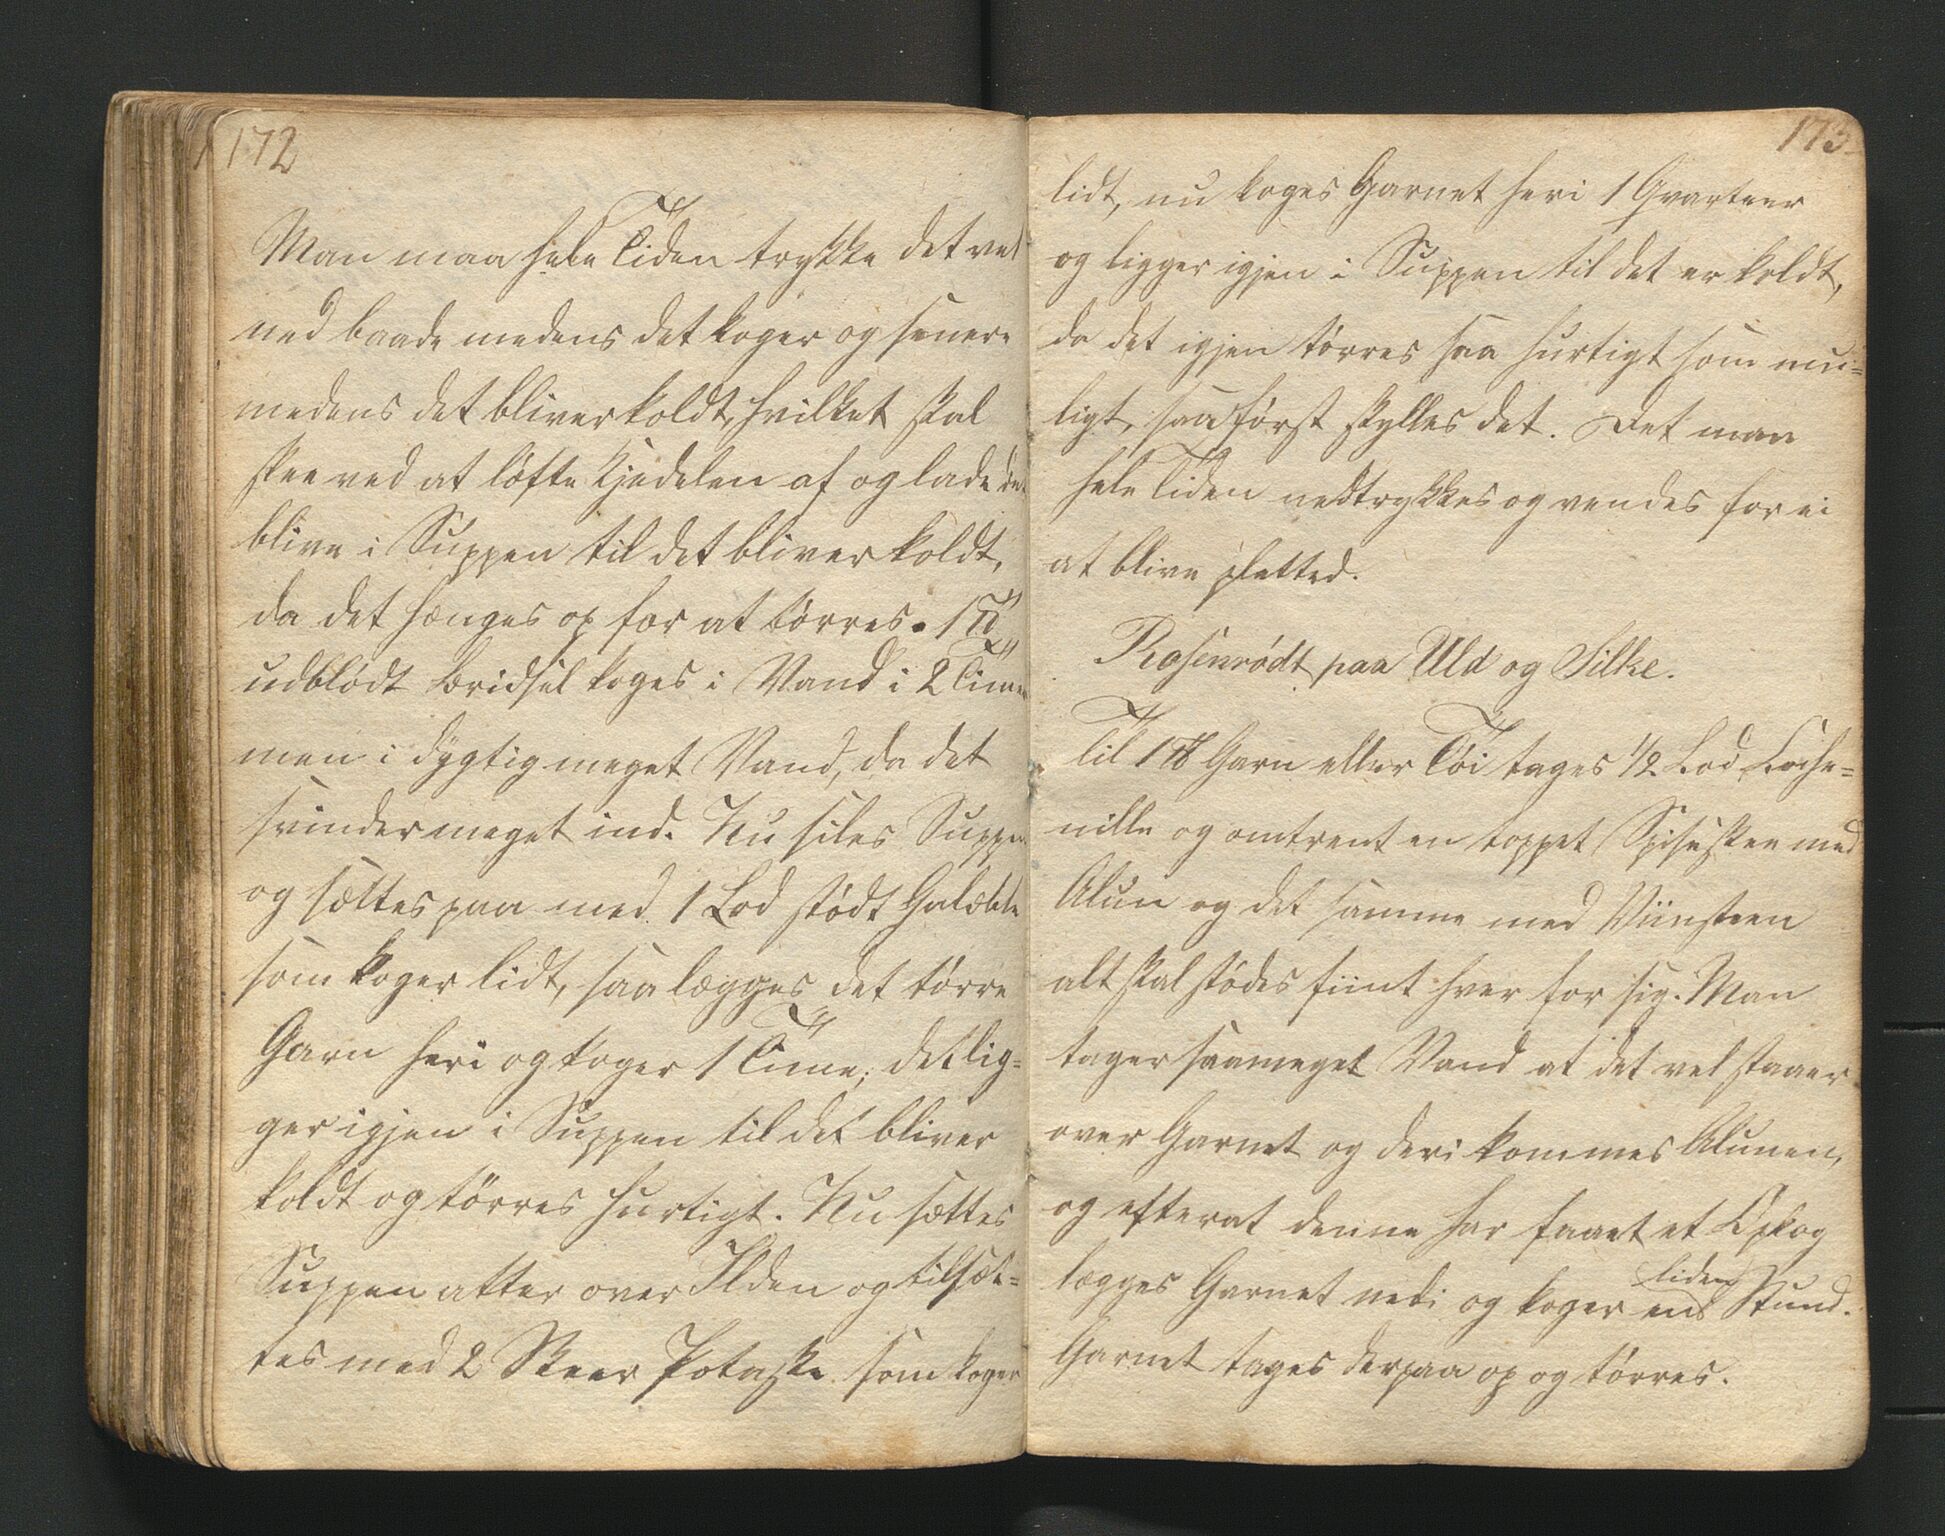 172
Man maa hele Tiden trykke det vel
ned baade medens det koger og senere
medens det bliver koldt, hvilket skal
skee ved at løfte Kjedelen af og lade det
blive i Suppen til det bliver koldt,
da det hænges op for at tørres. 1 ℔
udblødt Bridsel koges i Vand i 2 Timer
men i dygtig meget Vand, da det
svinder meget ind. Nu siles Suppen
og sættes paa med 1 Lod stødt Galæble
som koger lidt, saa lægges det tørre
Garn heri og koger 1 Time; det lig=
ger igjen i Suppen til det bliver
koldt og tørres hurtigt. Nu sættes
Suppen atter over Ilden og tilsæt=
tes med 2 Skeer Potaske som koger
173
lidt, nu koges Garnet heri 1 Qvarteer
og ligger igjen i Suppen til det er koldt,
da det igjen tørres saa hurtigt som mu=
ligt, saa først skylles det. Det maa
hele Tiden nedtrykkes og vendes for ei
at blive pletted.
Rosenrødt paa Uld og Silke.
Til 1 ℔ Garn eller Tøi tages 1/2 Lod Coche=
nille og omtrent en toppet Spiseskee med
Alun og det samme med Viinsteen
alt skal stødes fiint hver for sig. Man
tager saameget Vand at det vel staaer
over Garnet og deri kommes Alunen,
og efterat denne har faaet et Opkog
lægges Garnet nedi og koger en liden Stund.
Garnet tages derpaa op og tørres.